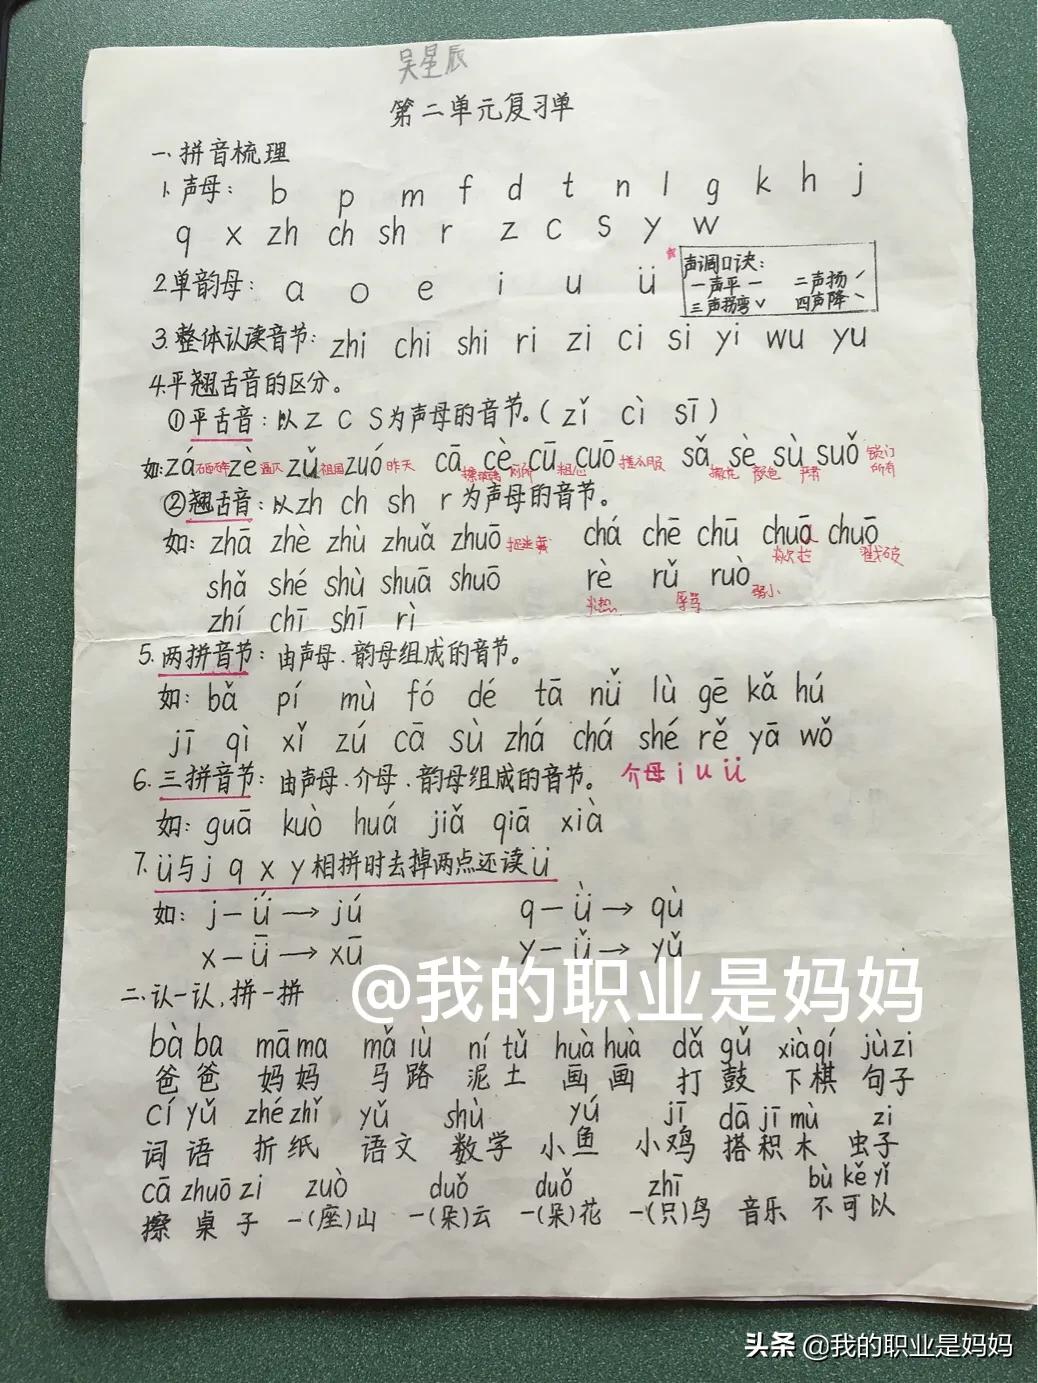 吴星辰
第二单元复习单
一、拼音梳理
1.声母: b p m f d t n l g k h j
q x zh ch sh r z c s y w
2.单韵母: a o e i u ü
声调口诀:
一声平 ー 二声扬 ˊ
三声拐弯 ˇ 四声降 ˋ
3.整体认读音节: zhi chi shi ri zi ci si yi wu yu
4.平翘舌音的区分。
①平舌音:以 z c s 为声母的音节。( zǐ cì sī )
如: zá zè zǔ 祖国 zuó 昨天 cā cè cū 粗心 cuō sǎ sè 颜色 sù suǒ 锁门 所有
②翘舌音:以 zh ch sh r 为声母的音节。
如: zhā zhè zhù zhuǎ zhuō 捉迷藏 chá chē chū chuā chuō 戳破
shǎ shé shù shuā shuō rè 炎热 rǔ 辱骂 ruò 弱小
zhí chī shī rì
5.两拼音节:由声母、韵母组成的音节。
如: bǎ pí mù fó dé tā nǚ lù gē kǎ hú
jī qì xǐ zú cā sù zhá chá shé rě yā wǒ
6.三拼音节:由声母、介母、韵母组成的音节。 介母 i u ü
如: guā kuò huá jiǎ qiā xià
7. ü与 j q x y 相拼时去掉两点还读 ü
如: j — ǘ → jú q — ǜ → qù
x — ǖ → xū y — ǚ → yǔ
@我的职业是妈妈
二、认一认,拼一拼
bà ba mā ma mǎ lù ní tǔ huà huà dǎ gǔ xià qí jù zi
爸爸 妈妈 马路 泥土 画画 打鼓 下棋 句子
cí yǔ zhé zhǐ yǔ shù yú jī dā jī mù zi
词语 折纸 语文 数学 小鱼 小鸡 搭积木 虫子
cā zhuō zi zuò duǒ duǒ zhī bù kě yǐ
擦桌子 一(座)山 一(朵)云 一(朵)花 一(只)鸟 音乐 不可以
头条 @我的职业是妈妈